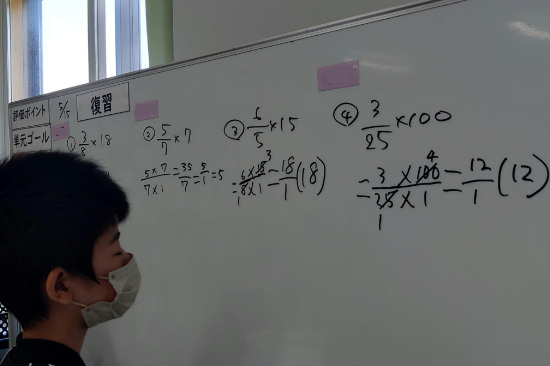 評価ポイント
5/5
復習
単元ゴール
① 3/8 × 18
② 5/7 × 7
5×7/7×1 = 35/7 = 5/1 = 5
③ 6/5 × 15
= 6×15/5×1 = 18/1 (18)
3
1
④ 3/25 × 100
= 3×100/25×1 = 12/1 (12)
4
1